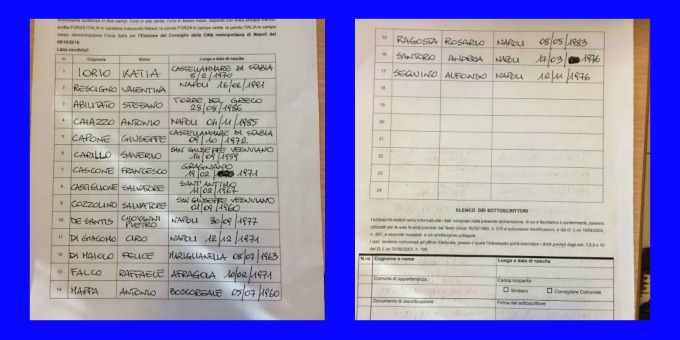 suddivisa in due campi, l'uno in alto verde, l'uno in basso rosso, separati con linea obliqua bianca,
scritta FORZA ITALIA in carattere maiuscolo bianco, la parola FORZA in campo verde, la parola ITALIA in campo
rosso denominazione Forza Italia per l'Elezione del Consiglio della Città metropolitana di Napoli del
09/10/2016.
Lista candidati:
N. Cognome Nome Luogo e data di nascita
1 IORIO KATIA CASTELLAMMARE DI STABIA 8/2/1970
2 RESCIGNO VALENTINA NAPOLI 16/06/1991
3 ABILITATO STEFANO TORRE DEL GRECO 28/08/1986
4 CAIAZZO ANTONIO NAPOLI 04/11/1985
5 CAPONE GIUSEPPE CASTELLAMMARE DI STABIA 09/10/1972
6 CARILLO SAVERIO SAN GIUSEPPE VESUVIANO 14/09/1959
7 CASCONE FRANCESCO GRAGNANO 19/02/1971
8 CASTIGLIONE SALVATORE SANT'ANTIMO 11/02/1967
9 COZZOLINO SALVATORE SAN GIUSEPPE VESUVIANO 01/09/1960
10 DE SANTIS GIOVANNI PIETRO NAPOLI 30/09/1977
11 DI GIACOMO CIRO NAPOLI 12/12/1971
12 DI MAIOLO FELICE MARIGLIANELLA 08/07/1963
13 FALCO RAFFAELE AFRAGOLA 10/02/1971
14 MAPPA ANTONIO BOSCOREALE 05/07/1960
15 RAGOSTA ROSARIO NAPOLI 08/05/1983
16 SANTORO ANDREA NAPOLI 17/03/1976
17 SEQUINO ALFONSO NAPOLI 12/11/1976
18
19
20
21
22
23
24
ELENCO DEI SOTTOSCRITTORI
I sottoscritti elettori sono informati che i dati compresi nella presente dichiarazione, di cui è facoltativo il conferimento, saranno
utilizzati per le sole finalità previste dal Testo Unico 16/05/1960, n. 570 e successive modificazioni, e dal D. L.vo 18/08/2000,
n. 267, e secondo modalità a ciò strettamente collegate.
I dati saranno comunicati all'ufficio Elettorale, presso il quale l'interessato potrà esercitare i diritti previsti dagli artt. 7,8,9 e 10
del D. L.vo 30/06/2003, n. 196.
N.ro Cognome e nome Luogo e data di nascita
Comune di appartenenza: Carica ricoperta:
Sindaco Consigliere Comunale
Documento di identificazione: Firma del sottoscrittore: